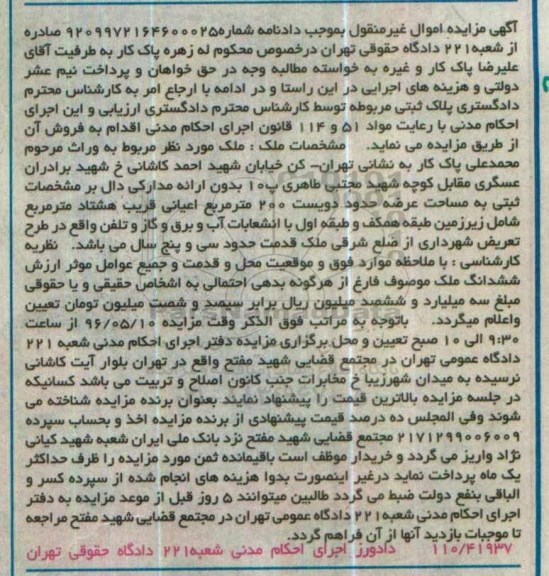 آگهی مزایده اموال غیرمنقول بموجب دادنامه شماره ۹۲۰۹۹۷۲۱۶۴۶۰۰۰۲۵ صادره
از شعبه ۲۲۱ دادگاه حقوقی تهران درخصوص محکوم له زهره پاک کار به طرفیت آقای
علیرضا پاک کار و غیره به خواسته مطالبه وجه در حق خواهان و پرداخت نیم عشر
دولتی و هزینه های اجرایی در این راستا و در ادامه با ارجاع امر به کارشناس محترم
دادگستری پلاک ثبتی مربوطه توسط کارشناس محترم دادگستری ارزیابی و این اجرای
احکام مدنی با رعایت مواد ۵۱ و ۱۱۴ قانون اجرای احکام مدنی اقدام به فروش آن
از طریق مزایده می نماید. مشخصات ملک : ملک مورد نظر مربوط به وراث مرحوم
محمدعلی پاک کار به نشانی تهران- کن خیابان شهید احمد کاشانی خ شهید برادران
عسگری مقابل کوچه شهید مجتبی طاهری پ۱۰ بدون ارائه مدارکی دال بر مشخصات
ثبتی به مساحت عرصه حدود دویست ۲۰۰ مترمربع اعیانی قریب هشتاد مترمربع
شامل زیرزمین طبقه همکف و طبقه اول با انشعابات آب و برق و گاز و تلفن واقع در طرح
تعریض شهرداری از ضلع شرقی ملک قدمت حدود سی و پنج سال می باشد. نظریه
کارشناسی : با ملاحظه موارد فوق و موقعیت محل و قدمت و جمیع عوامل موثر ارزش
ششدانگ ملک موصوف فارغ از هرگونه بدهی احتمالی به اشخاص حقیقی و یا حقوقی
مبلغ سه میلیارد و ششصد میلیون ریال برابر سیصد و شصت میلیون تومان تعیین
واعلام میگردد. باتوجه به مراتب فوق الذکر وقت مزایده ۹۶/۰۵/۱۰ از ساعت
۹:۳۰ الی ۱۰ صبح تعیین و محل برگزاری مزایده دفتر اجرای احکام مدنی شعبه ۲۲۱
دادگاه عمومی تهران در مجتمع قضایی شهید مفتح واقع در تهران بلوار آیت کاشانی
نرسیده به میدان شهرزیبا خ مخابرات جنب کانون اصلاح و تربیت می باشد کسانیکه
در جلسه مزایده بالاترین قیمت را پیشنهاد نمایند بعنوان برنده مزایده شناخته می
شوند وفی المجلس ده درصد قیمت پیشنهادی از برنده مزایده اخذ و بحساب سپرده
۲۱۷۱۲۹۹۰۰۶۰۰۹ مجتمع قضایی شهید مفتح نزد بانک ملی ایران شعبه شهید کیانی
نژاد واریز می گردد و خریدار موظف است باقیمانده ثمن مورد مزایده را ظرف حداکثر
یک ماه پرداخت نماید درغیر اینصورت بدوا هزینه های انجام شده از سپرده کسر و
الباقی بنفع دولت ضبط می گردد طالبین میتوانند ۵ روز قبل از موعد مزایده به دفتر
اجرای احکام مدنی شعبه ۲۲۱ دادگاه عمومی تهران در مجتمع قضایی شهید مفتح مراجعه
تا موجبات بازدید آنها از آن فراهم گردد.
۱۱۰/۴۱۹۳۷ دادورز اجرای احکام مدنی شعبه ۲۲۱ دادگاه حقوقی تهران